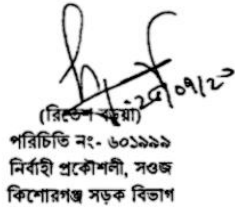 (রিতেশ বড়ুয়া)
পরিচিতি নং- ৬০১৯৯৯
নির্বাহী প্রকৌশলী, সওজ
কিশোরগঞ্জ সড়ক বিভাগ